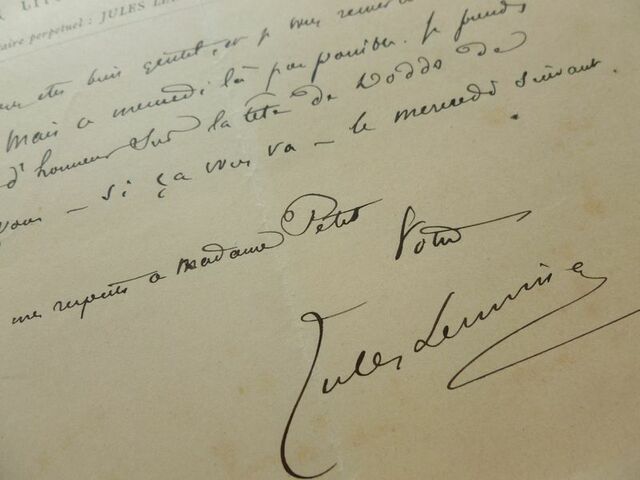 LITT
aire perpétuel : JULES LE
êtes bien gentil, et je vous remerc
Mais ce mercredi là pas possible. Je prends
d'honneur sur la tête de Dodds de
vous – si ça vous va – le mercredi suivant.
mes respects à madame Petit
Votre
Jules Lermina